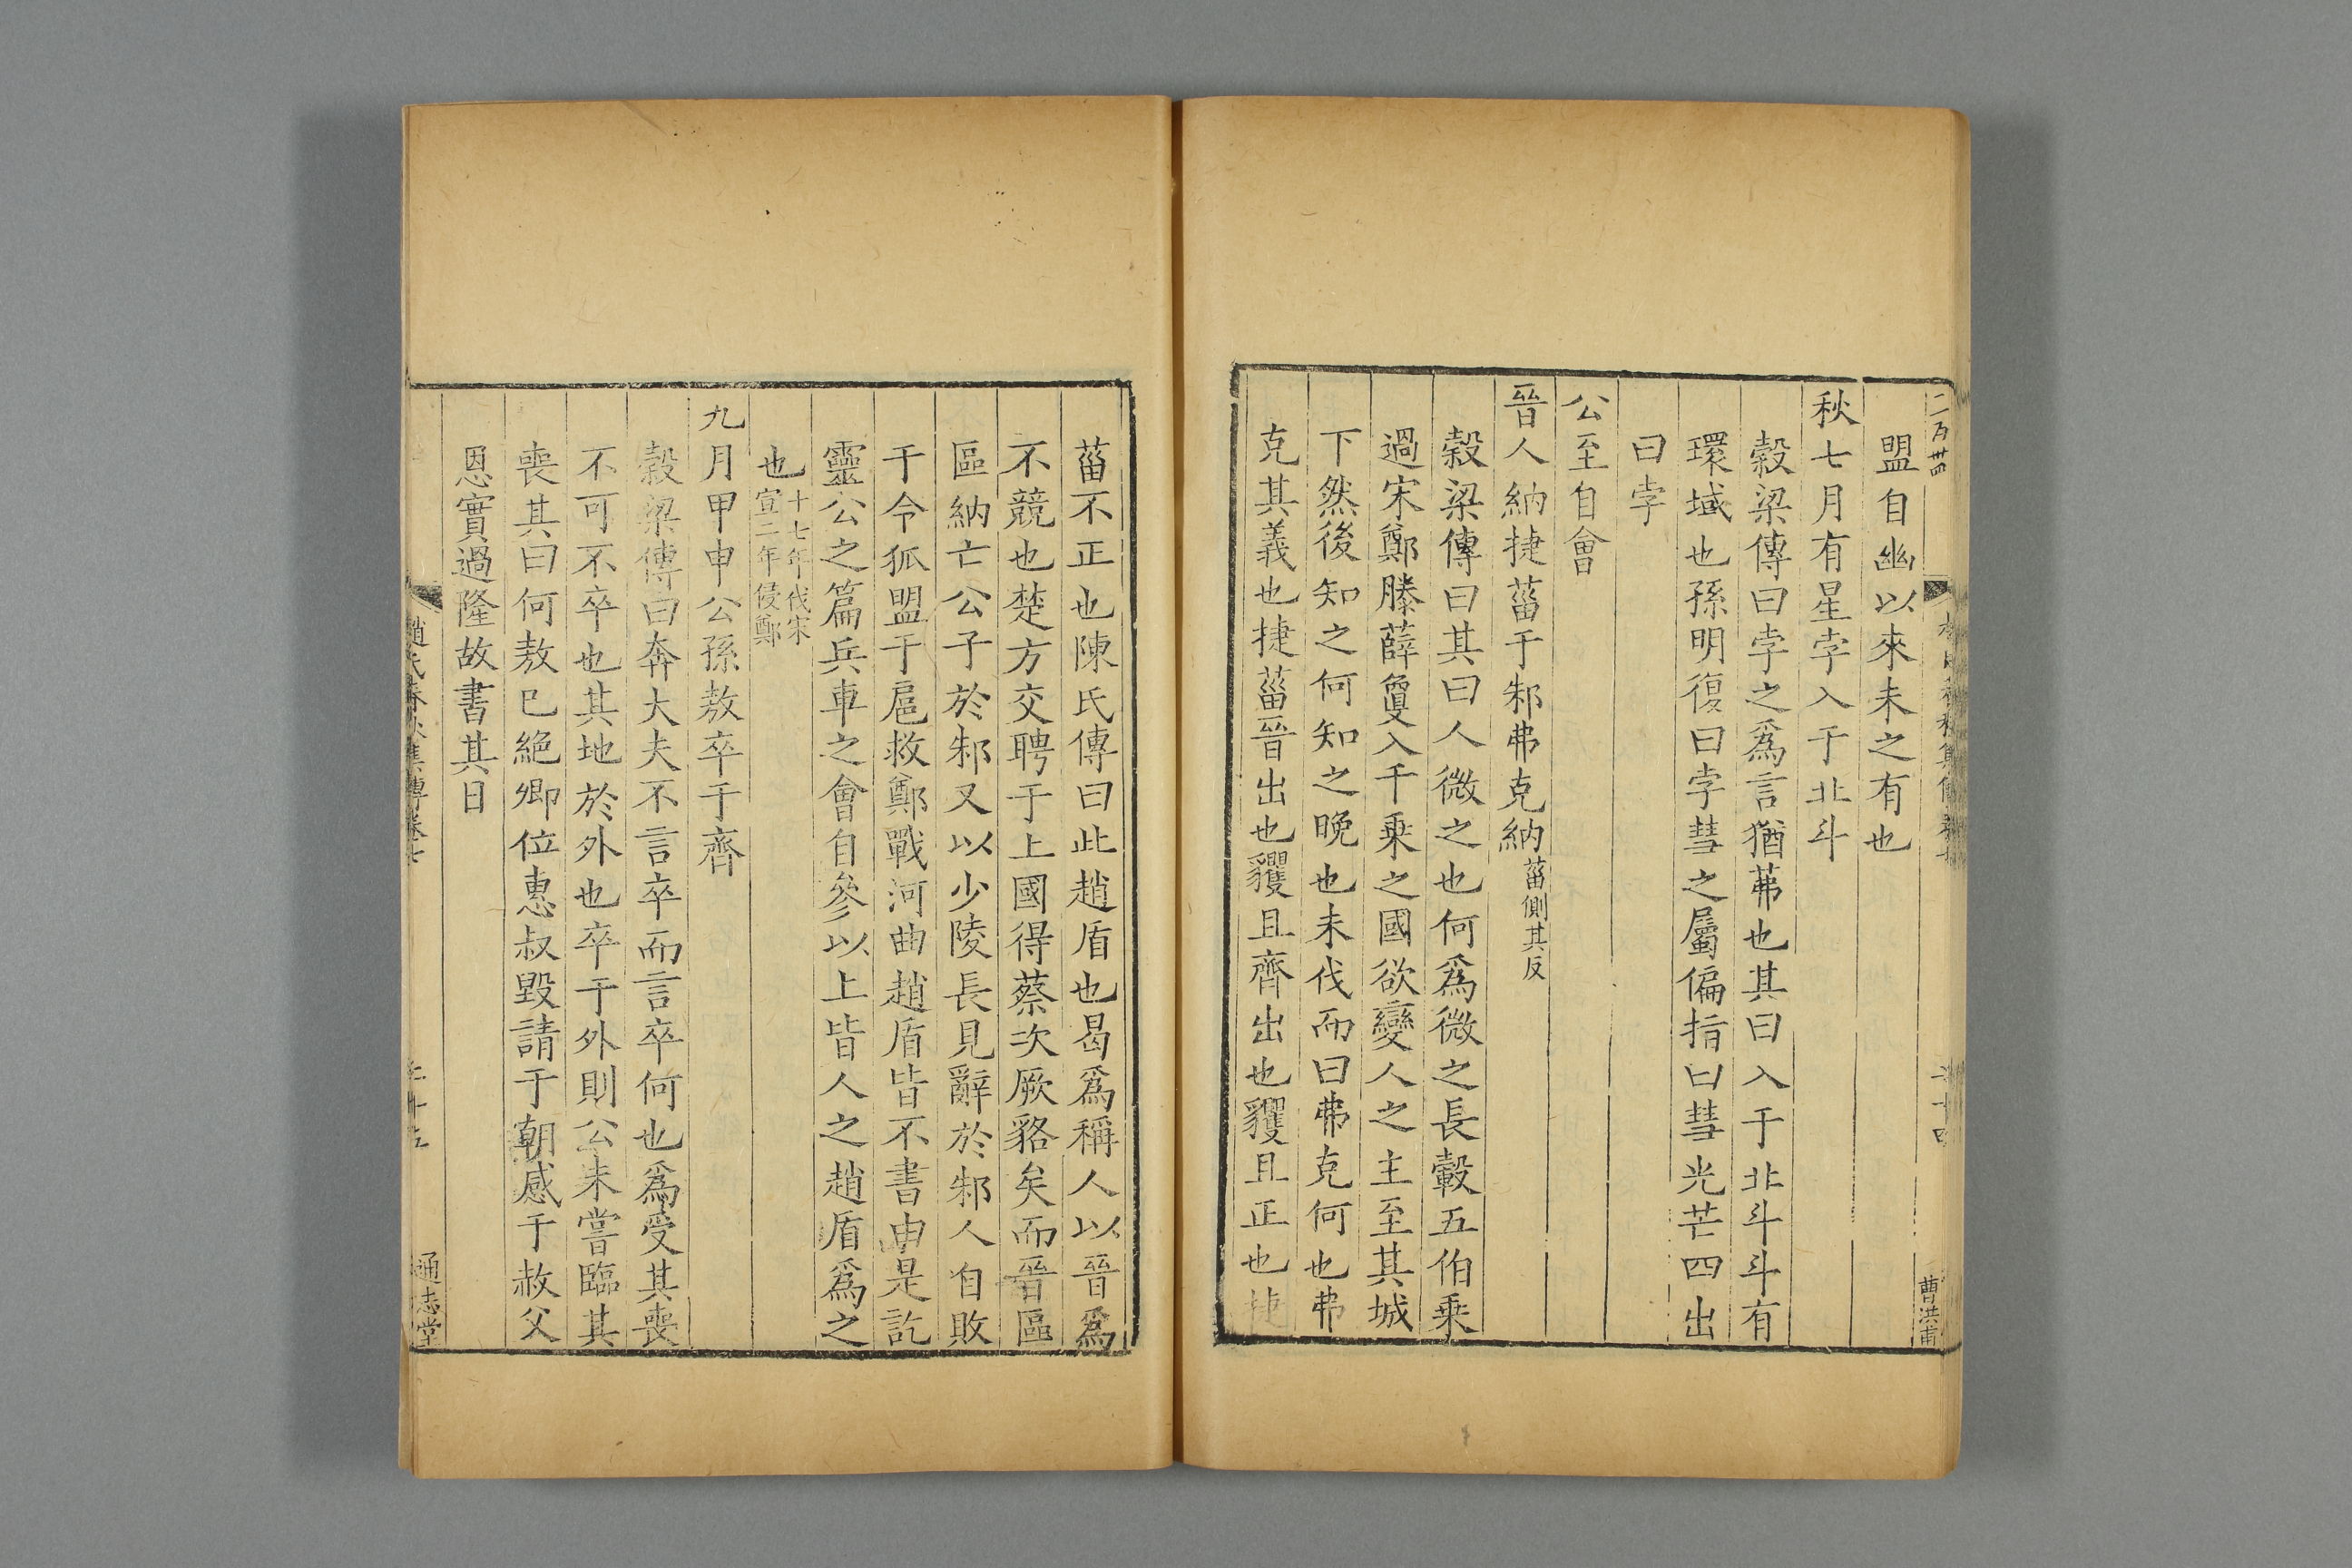 盟自幽以來未之有也
秋七月有星孛入于北斗
穀梁傳曰孛之爲言猶茀也其曰入于北斗斗有
環域也孫明復曰孛彗之屬偏指曰彗光芒四出
曰孛
公至自會
晉人納捷菑于邾弗克納菑側其反
穀梁傳曰其曰人微之也何爲微之長轂五伯乗
過宋鄭滕薛敻入千乗之國欲變人之主至其城
下然後知之何知之晚也未伐而曰弗克何也弗
克其義也捷菑晉出也貜且齊出也貜且正也捷
菑不正也陳氏傳曰此趙盾也曷爲稱人以晉爲
不競也楚方交聘于上國得蔡次厥貉矣而晉區
區納亡公子於邾又以少陵長見辭於邾人自敗
于令狐盟于扈救鄭戰河曲趙盾皆不書由是訖
靈公之篇兵車之會自參以上皆人之趙盾爲之
也十七年伐宋
宣二年侵鄭
九月甲申公孫敖卒于齊
穀梁傳曰奔大夫不言卒而言卒何也爲受其喪
不可不卒也其地於外也卒于外則公未嘗臨其
喪其曰何敖巳絕卿位惠叔毀請于朝感于赦父
恩實過隆故書其日
趙氏春秋集傳卷七
二十五
通志堂
二百廿四
二十四
曹洪甫